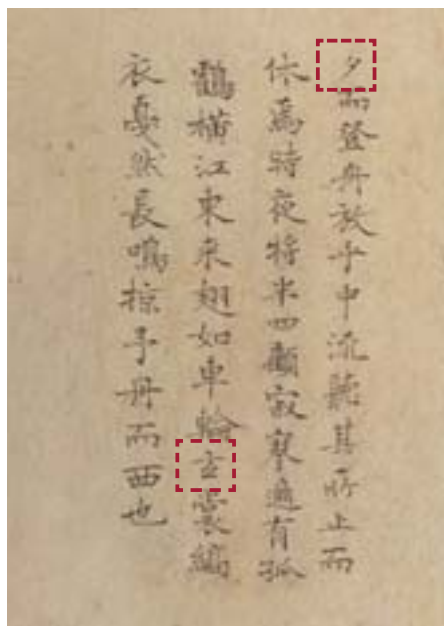 夕而登舟放乎中流聽其所止而
休焉時夜將半四顧寂寥適有孤
鶴橫江東來翅如車輪玄裳縞
衣戛然長鳴掠予舟而西也